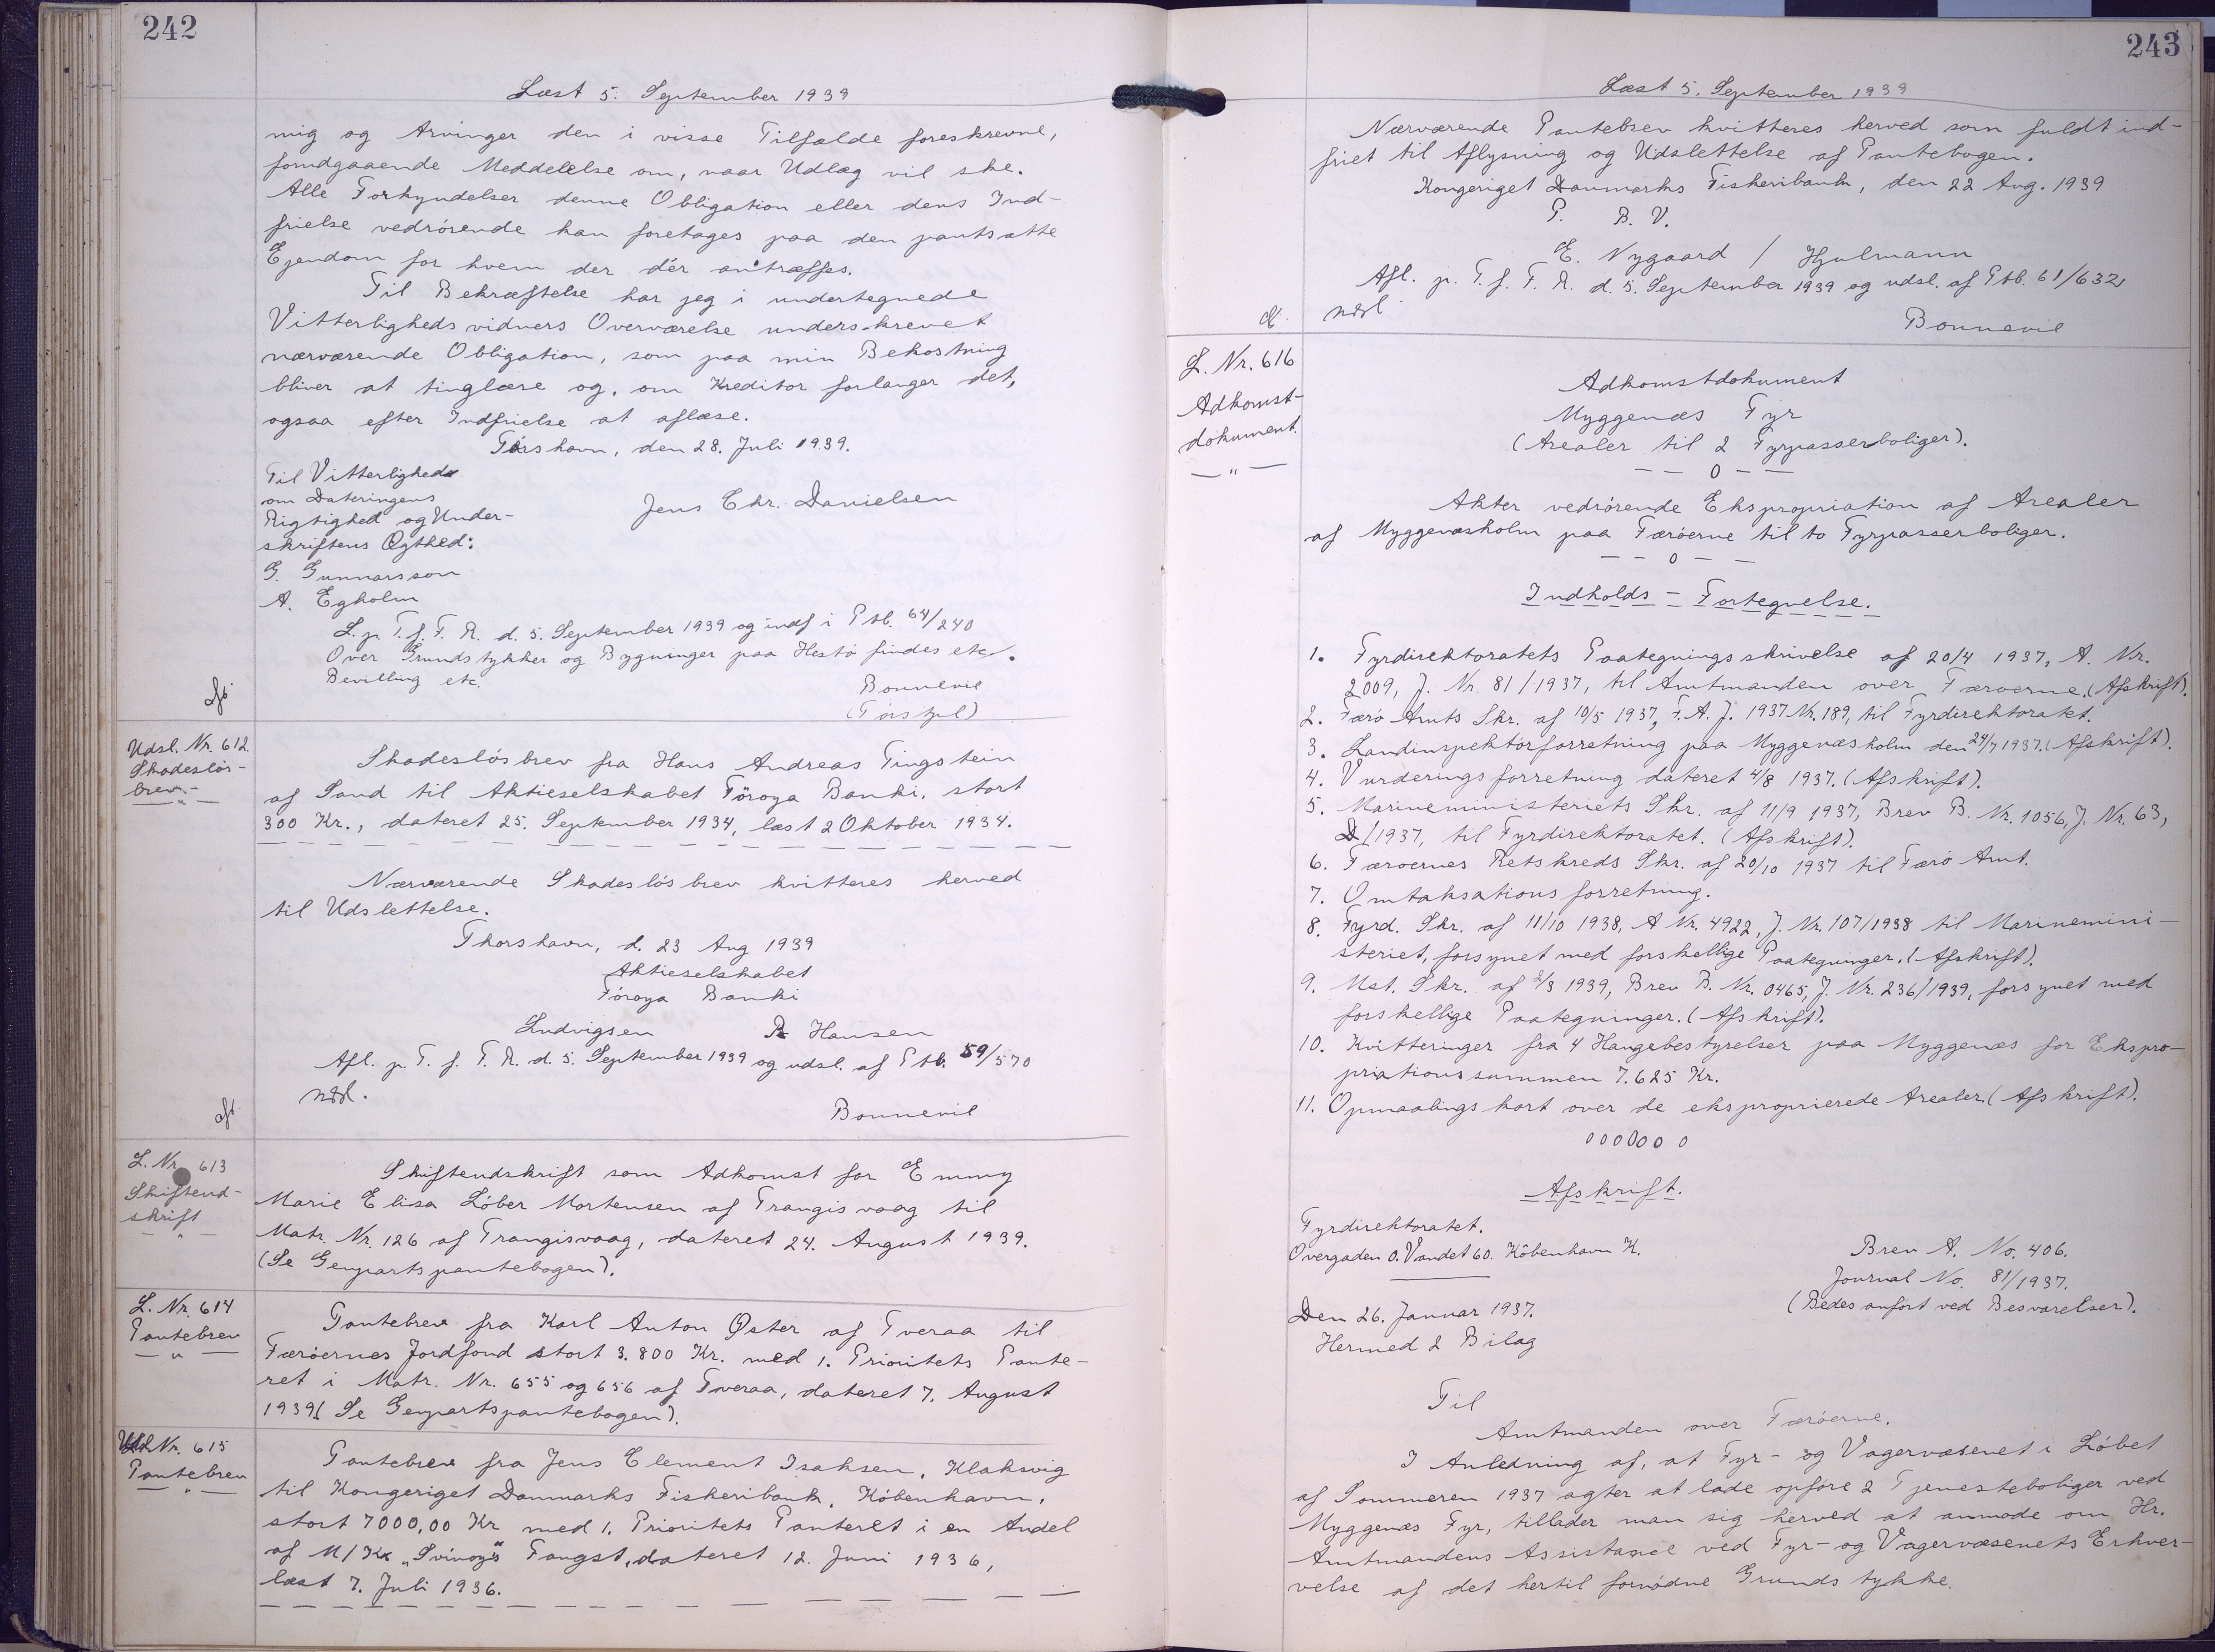 242
Læst 5. September 1939
mig og Arvinger den i visse Tilfælde foreskrevne,
forudgaaende Meddelelse om, naar Udlæg vil ske.
Alle Forkyndelser denne Obligation eller dens Ind-
frielse vedrörende kan foretages paa den pantsatte
Ejendom for hvem der dér antræffes.
Til Bekræftelse har jeg i undertegnede
Vitterlighedsvidners Overværelse underskrevet
nærværende Obligation, som paa min Bekostning
bliver at tinglæse og, om Kreditor forlanger det,
ogsaa efter Indfrielse at aflæse.
Tórshavn, den 28. Juli 1939.
Til Vitterligheds
om Dateringens
Rigtighed og Under-
skriftens Ægthed:
Jens Chr. Danielsen
G. Gunnarsson
A. Egholm
L. p. T. f. F. R. d. 5. September 1939 og indf i Ptb. 64/240
Over Grundstykker og Bygninger paa Hestö findes etc.
Bevilling etc.
Bonnevie
Udsl. Nr. 612
Skadeslös-
brev.-
— " —
Skadeslösbrev fra Hans Andreas Tingstein
af Sand til Aktieselskabet Föroya Banki, stort
300 Kr., dateret 25. September 1934, læst 2 Oktober 1934.
Nærværende Skadeslösbrev kvitteres herved
til Udslettelse.
Thorshavn, d. 23 Aug 1939
Aktieselskabet
Föroya Banki
Ludvigsen R Hansen
Afl. p. T. f. F. R. d. 5. September 1939 og udsl. af Ptb. 59/570
Bonnevie
L. Nr. 613
Skiftend-
skrift
— " —
Skifteudskrift som Adkomst for Emmy
Marie Elisa Löber Mortensen af Trangisvaag til
Matr. Nr. 126 af Trangisvaag, dateret 24. August 1939.
(Se Genpartspantebogen).
L. Nr. 614
Pantebrev
— " —
Pantebrev fra Karl Anton Øster af Tveraa til
Færöernes Jordfond stort 3.800 Kr. med 1. Prioritets Pante-
ret i Matr. Nr. 655 og 656 af Tveraa, dateret 7. August
1939 (Se Genpartspantebogen).
Udsl Nr. 615
Pantebrev
— " —
Pantebrev fra Jens Element Isaksen, Klaksvig
til Kongeriget Danmarks Fiskeribank, Köbenhavn,
stort 7000,00 Kr med 1. Prioritets Panteret i en Andel
af M/Kx „Svinoy's" Fangst, dateret 12. Juni 1936,
læst 7. Juli 1936.
243
Læst 5. September 1939
Nærværende Pantebrev kvitteres herved som fuldt ind-
friet til Aflysning og Udslettelse af Pantebogen.
Kongeriget Danmarks Fiskeribank, den 22 Aug. 1939
P. B. V.
E. Nygaard / Hjulmann
Afl. p. T. f. F. R. d. 5. September 1939 og udsl. af Ptb. 61/632
Bonnevie
L. Nr. 616
Adkomst-
dokument.
— " —
Adkomstdokument
Myggenæs Fyr
(Arealer til 2 Fyrpasserboliger).
— — 0 — —
Akter vedrörende Ekspropriation af Arealer
af Myggenæsholm paa Færöerne til to Fyrpasserboliger.
— — 0 — —
Indholds - Fortegnelse.
1. Fyrdirektoratets Paategningsskrivelse af 20/4 1937, A. Nr.
2009, J. Nr. 81/1937, til Amtmanden over Færöerne. (Afskrift).
2. Færö Amts Skr. af 10/5 1937, F. A. J. 1937 Nr. 189, til Fyrdirektoratet.
3. Landinspektörforretning paa Myggenæsholm den 24/7 1937. (Afskrift).
4. Vurderingsforretning dateret 4/8 1937. (Afskrift).
5. Marineministeriets Skr. af 11/9 1937, Brev B. Nr. 1056, J. Nr. 63,
D/1937, til Fyrdirektoratet. (Afskrift).
6. Færöernes Retskreds Skr. af 20/10 1937 til Færö Amt.
7. Omtaksationsforretning.
8. Fyrd. Skr. af 11/10 1938, A Nr. 4922, J. Nr. 107/1938 til Marinemini-
steriet, forsynet med forskellige Paategninger. (Afskrift).
9. Mst. Skr. af 2/3 1939, Brev B. Nr. 0465, J. Nr. 236/1939, forsynet med
forskellige Paategninger. (Afskrift).
10. Kvitteringer fra 4 Haugebestyrelser paa Myggenæs for Ekspro-
priationssummen 7.625 Kr.
11. Opmaalingskort over de eksproprierede Arealer. (Afskrift).
000000 0
Afskrift.
Fyrdirektoratet.
Overgaden o. Vandet 60. Köbenhavn K.
Brev A. No. 406.
Journal No. 81/1937.
(Bedes anfört ved Besvarelser).
Den 26. Januar 1937.
Hermed 2 Bilag
Til
Amtmanden over Færöerne.
I Anledning af, at Fyr- og Vagervæsenet i Löbet
af Sommeren 1937 agter at lade opföre 2 Tjenesteboliger ved
Myggenæs Fyr, tillader man sig herved at anmode om Hr.
Amtmandens Assistance ved Fyr- og Vagervæsenets Erhver-
velse af det hertil fornödne Grundstykke.